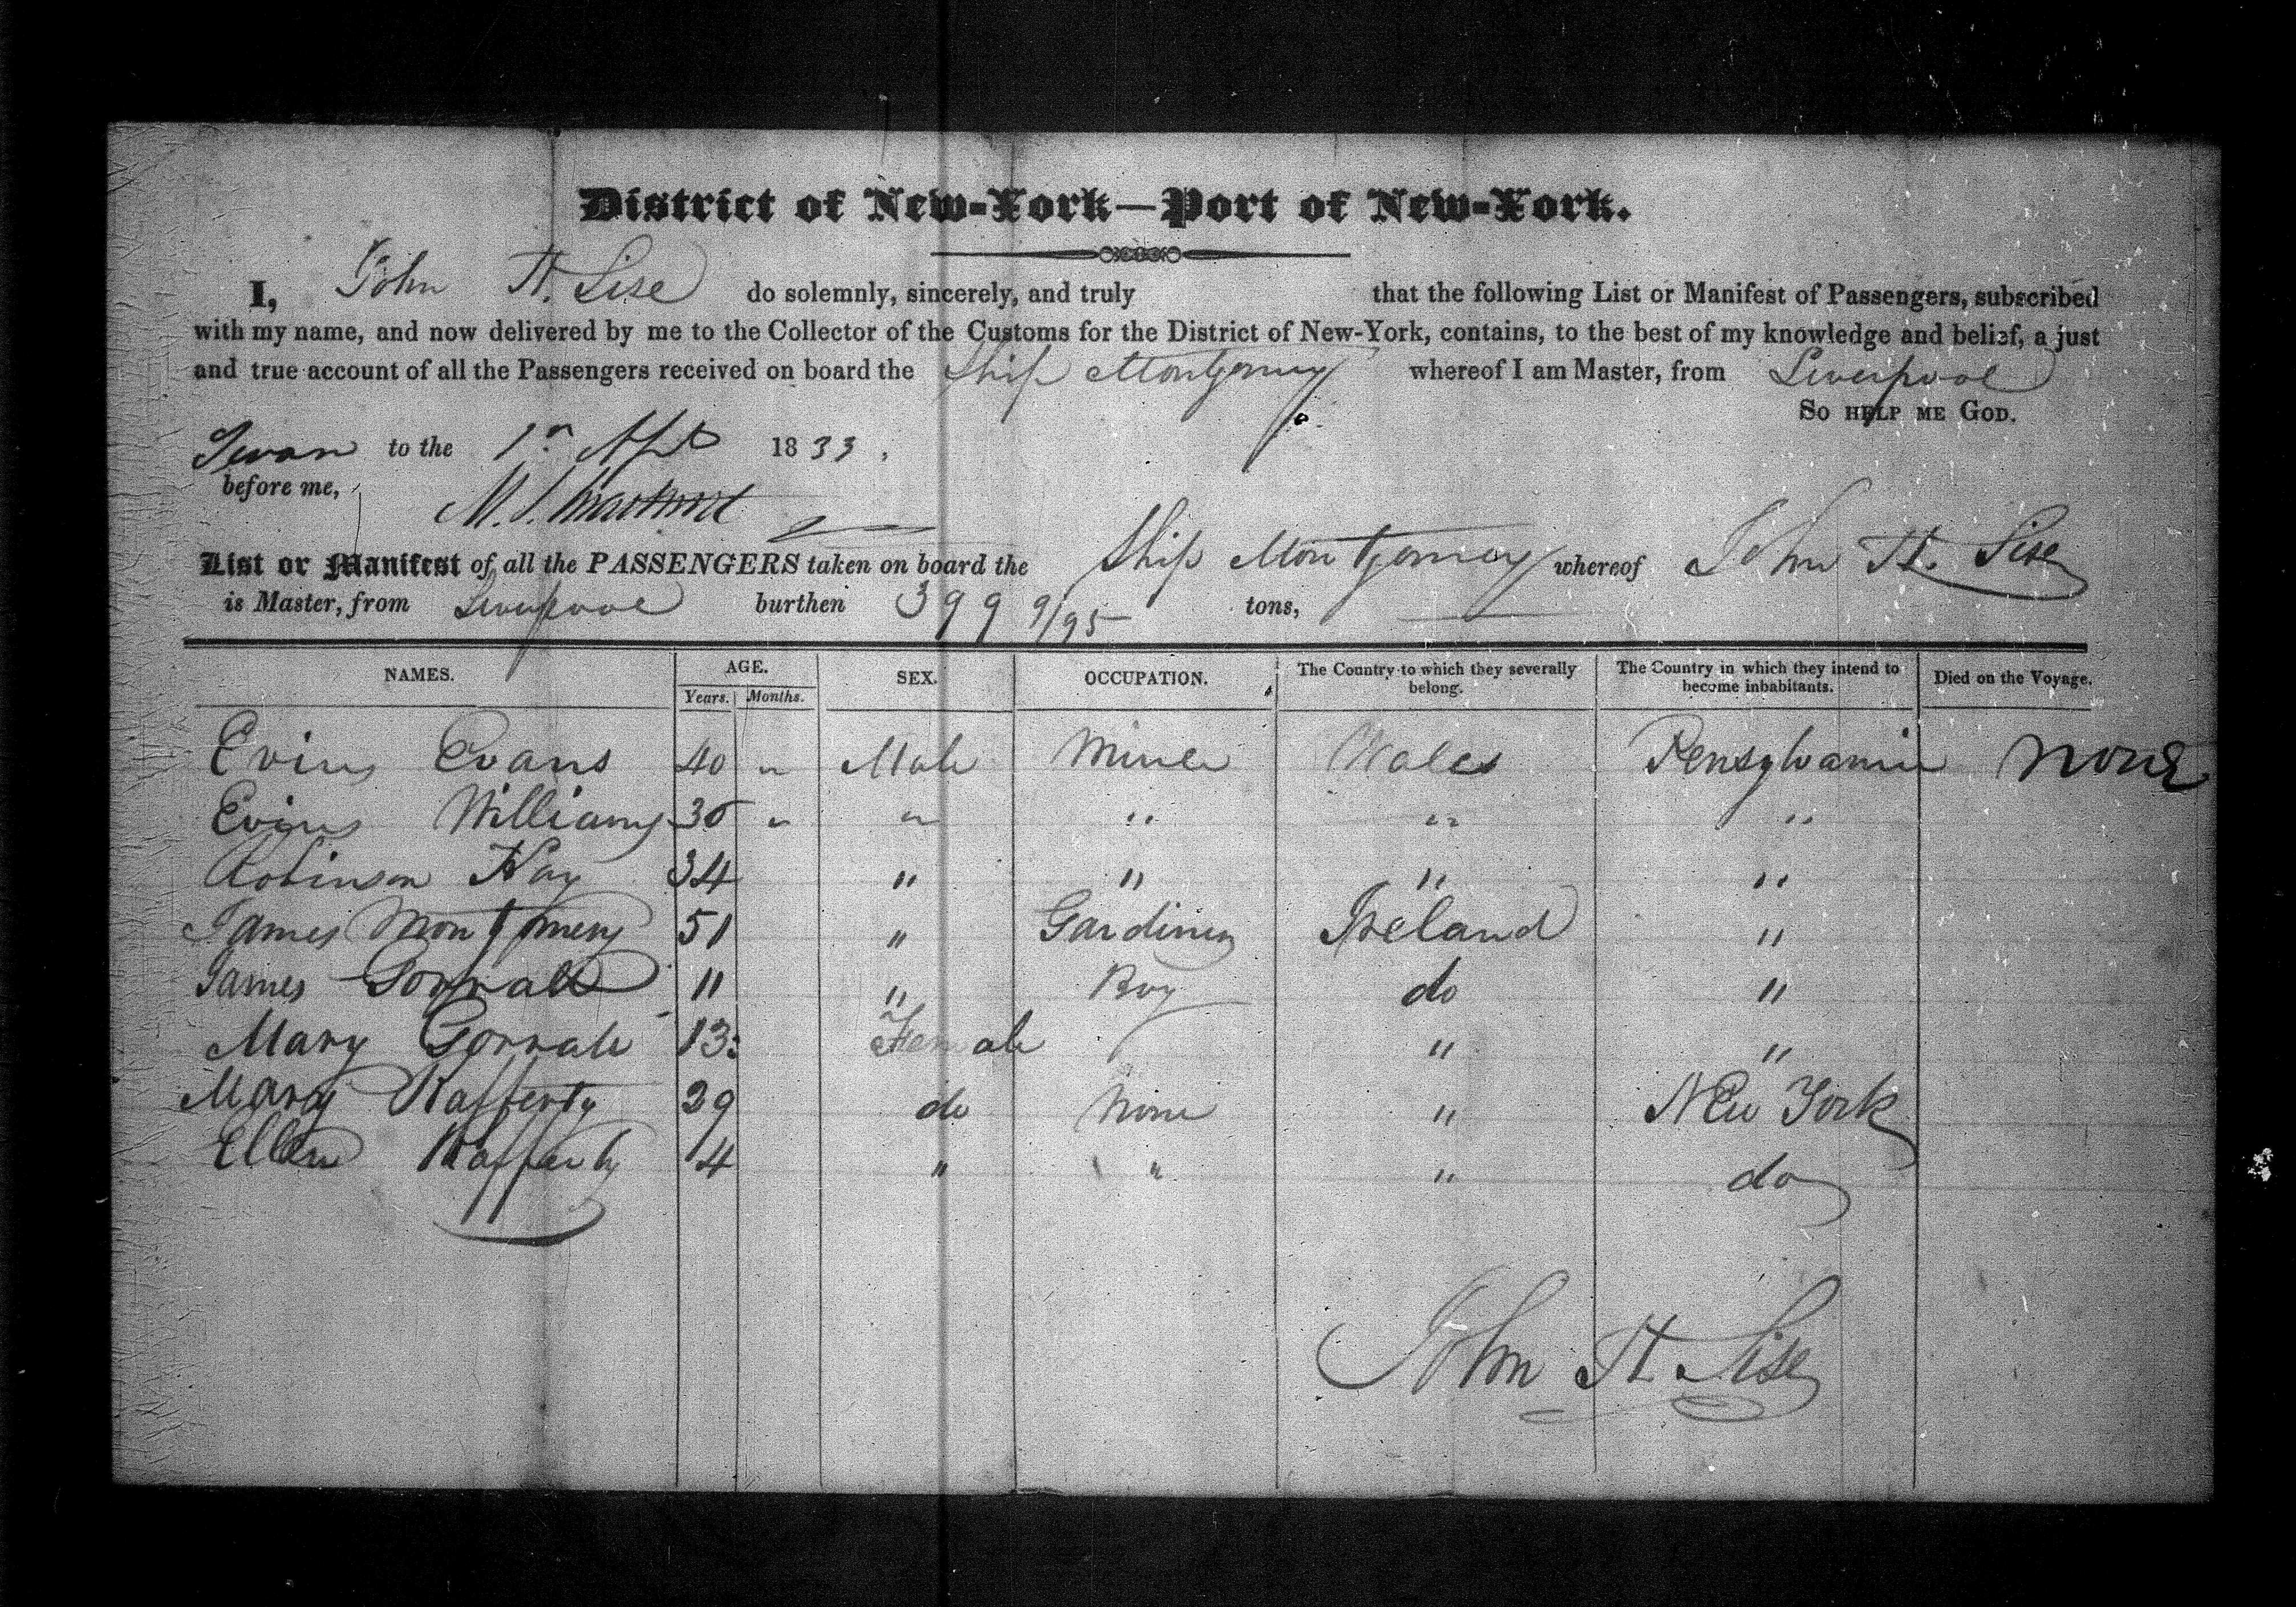 District of New-York—Port of New-York.
I, John H. Sise do solemnly, sincerely, and truly that the following List or Manifest of Passengers, subscribed
with my name, and now delivered by me to the Collector of the Customs for the District of New-York, contains, to the best of my knowledge and belief, a just
and true account of all the Passengers received on board the Ship Montgomery whereof I am Master, from Liverpool
So help me God.
Sworn to the 1st Apl 1833.
before me,
List or Manifest of all the PASSENGERS taken on board the Ship Montgomery whereof John H. Sise
is Master, from Liverpool burthen 399 9/95 tons,
NAMES. AGE. SEX. OCCUPATION. The Country to which they severally belong. The Country in which they intend to become inhabitants. Died on the Voyage.
Years. Months.
Evins Evans 40 " Male Miner Wales Pensylvania none
Evins Williams 30 " " " " "
Robinson Kay 34 " " " "
James Montgomery 51 " Gardiner Ireland "
James Gorrall 11 " Boy do "
Mary Gorrall 13 Female " "
Mary Rafferty 39 do None " New York
Ellen Rafferty 14 " " " do
John H Sise